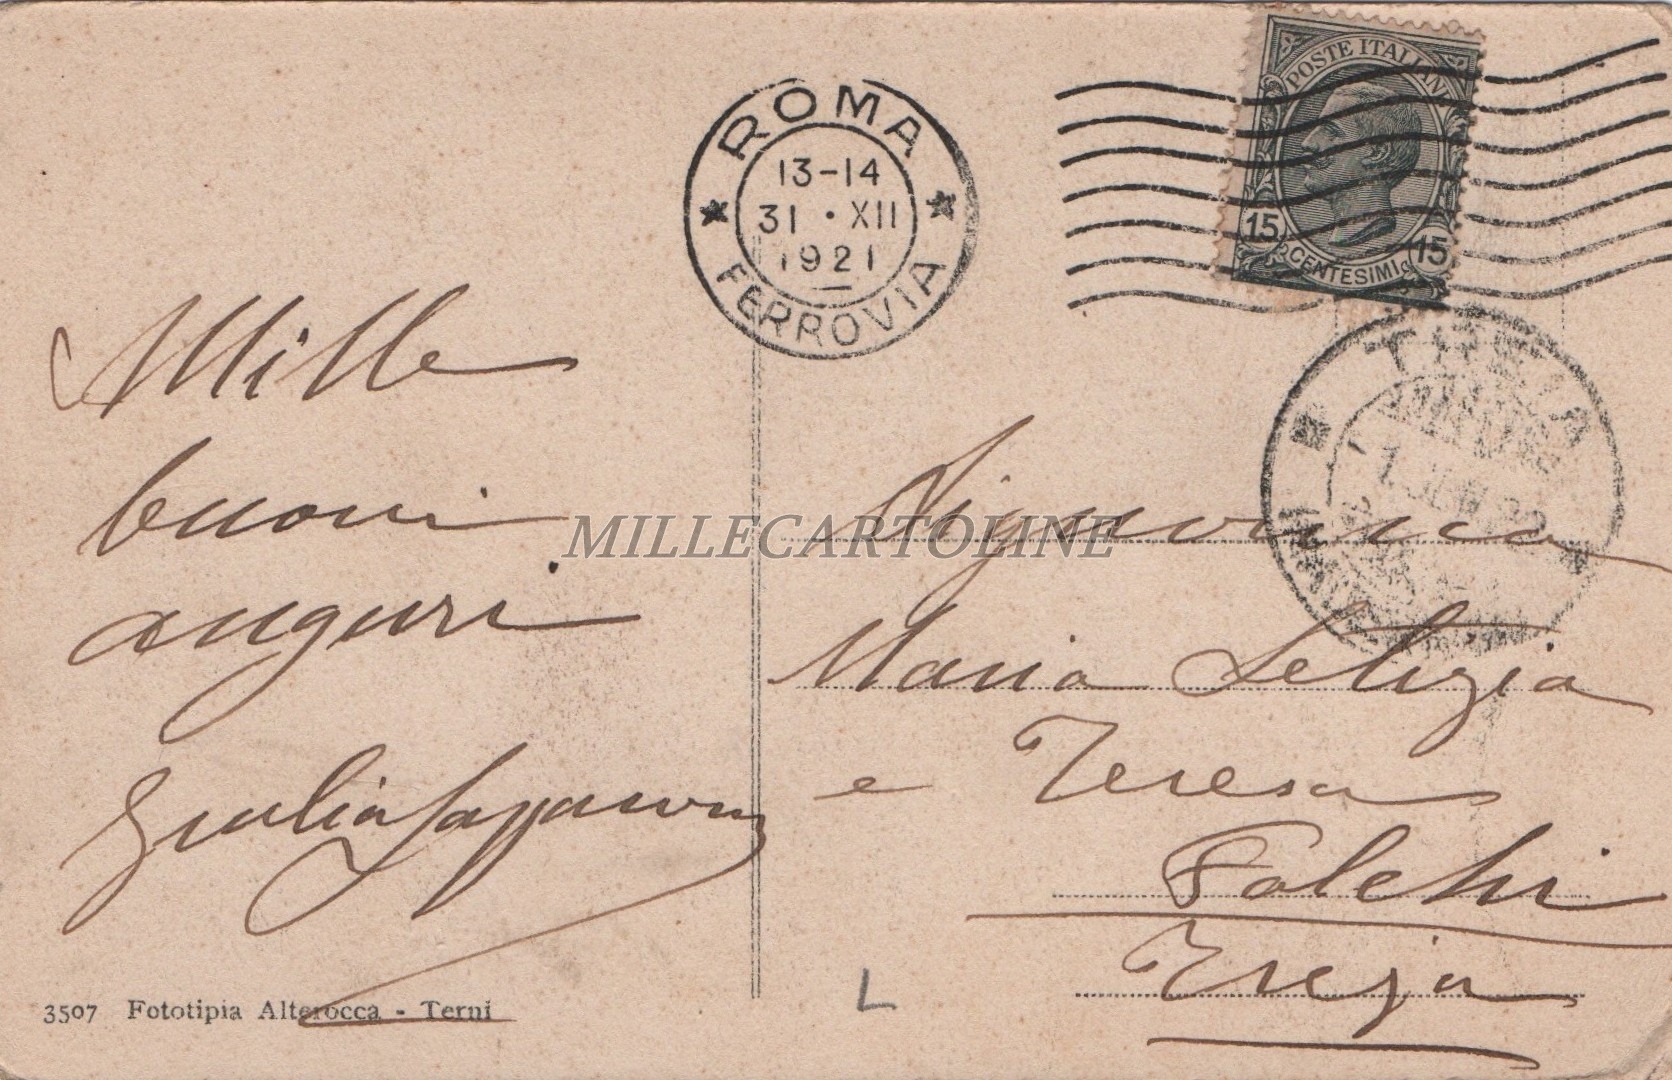 Mille
buoni
auguri
Giulia
3507 Fototipia Alterocca - Terni
ROMA
13-14
31 • XII
1921
FERROVIA
POSTE ITALIANE
15 CENTESIMI 15
TREIA
MILLECARTOLINE
Signorina
Maria Letizia
e Teresa
Falchi
Treja
L